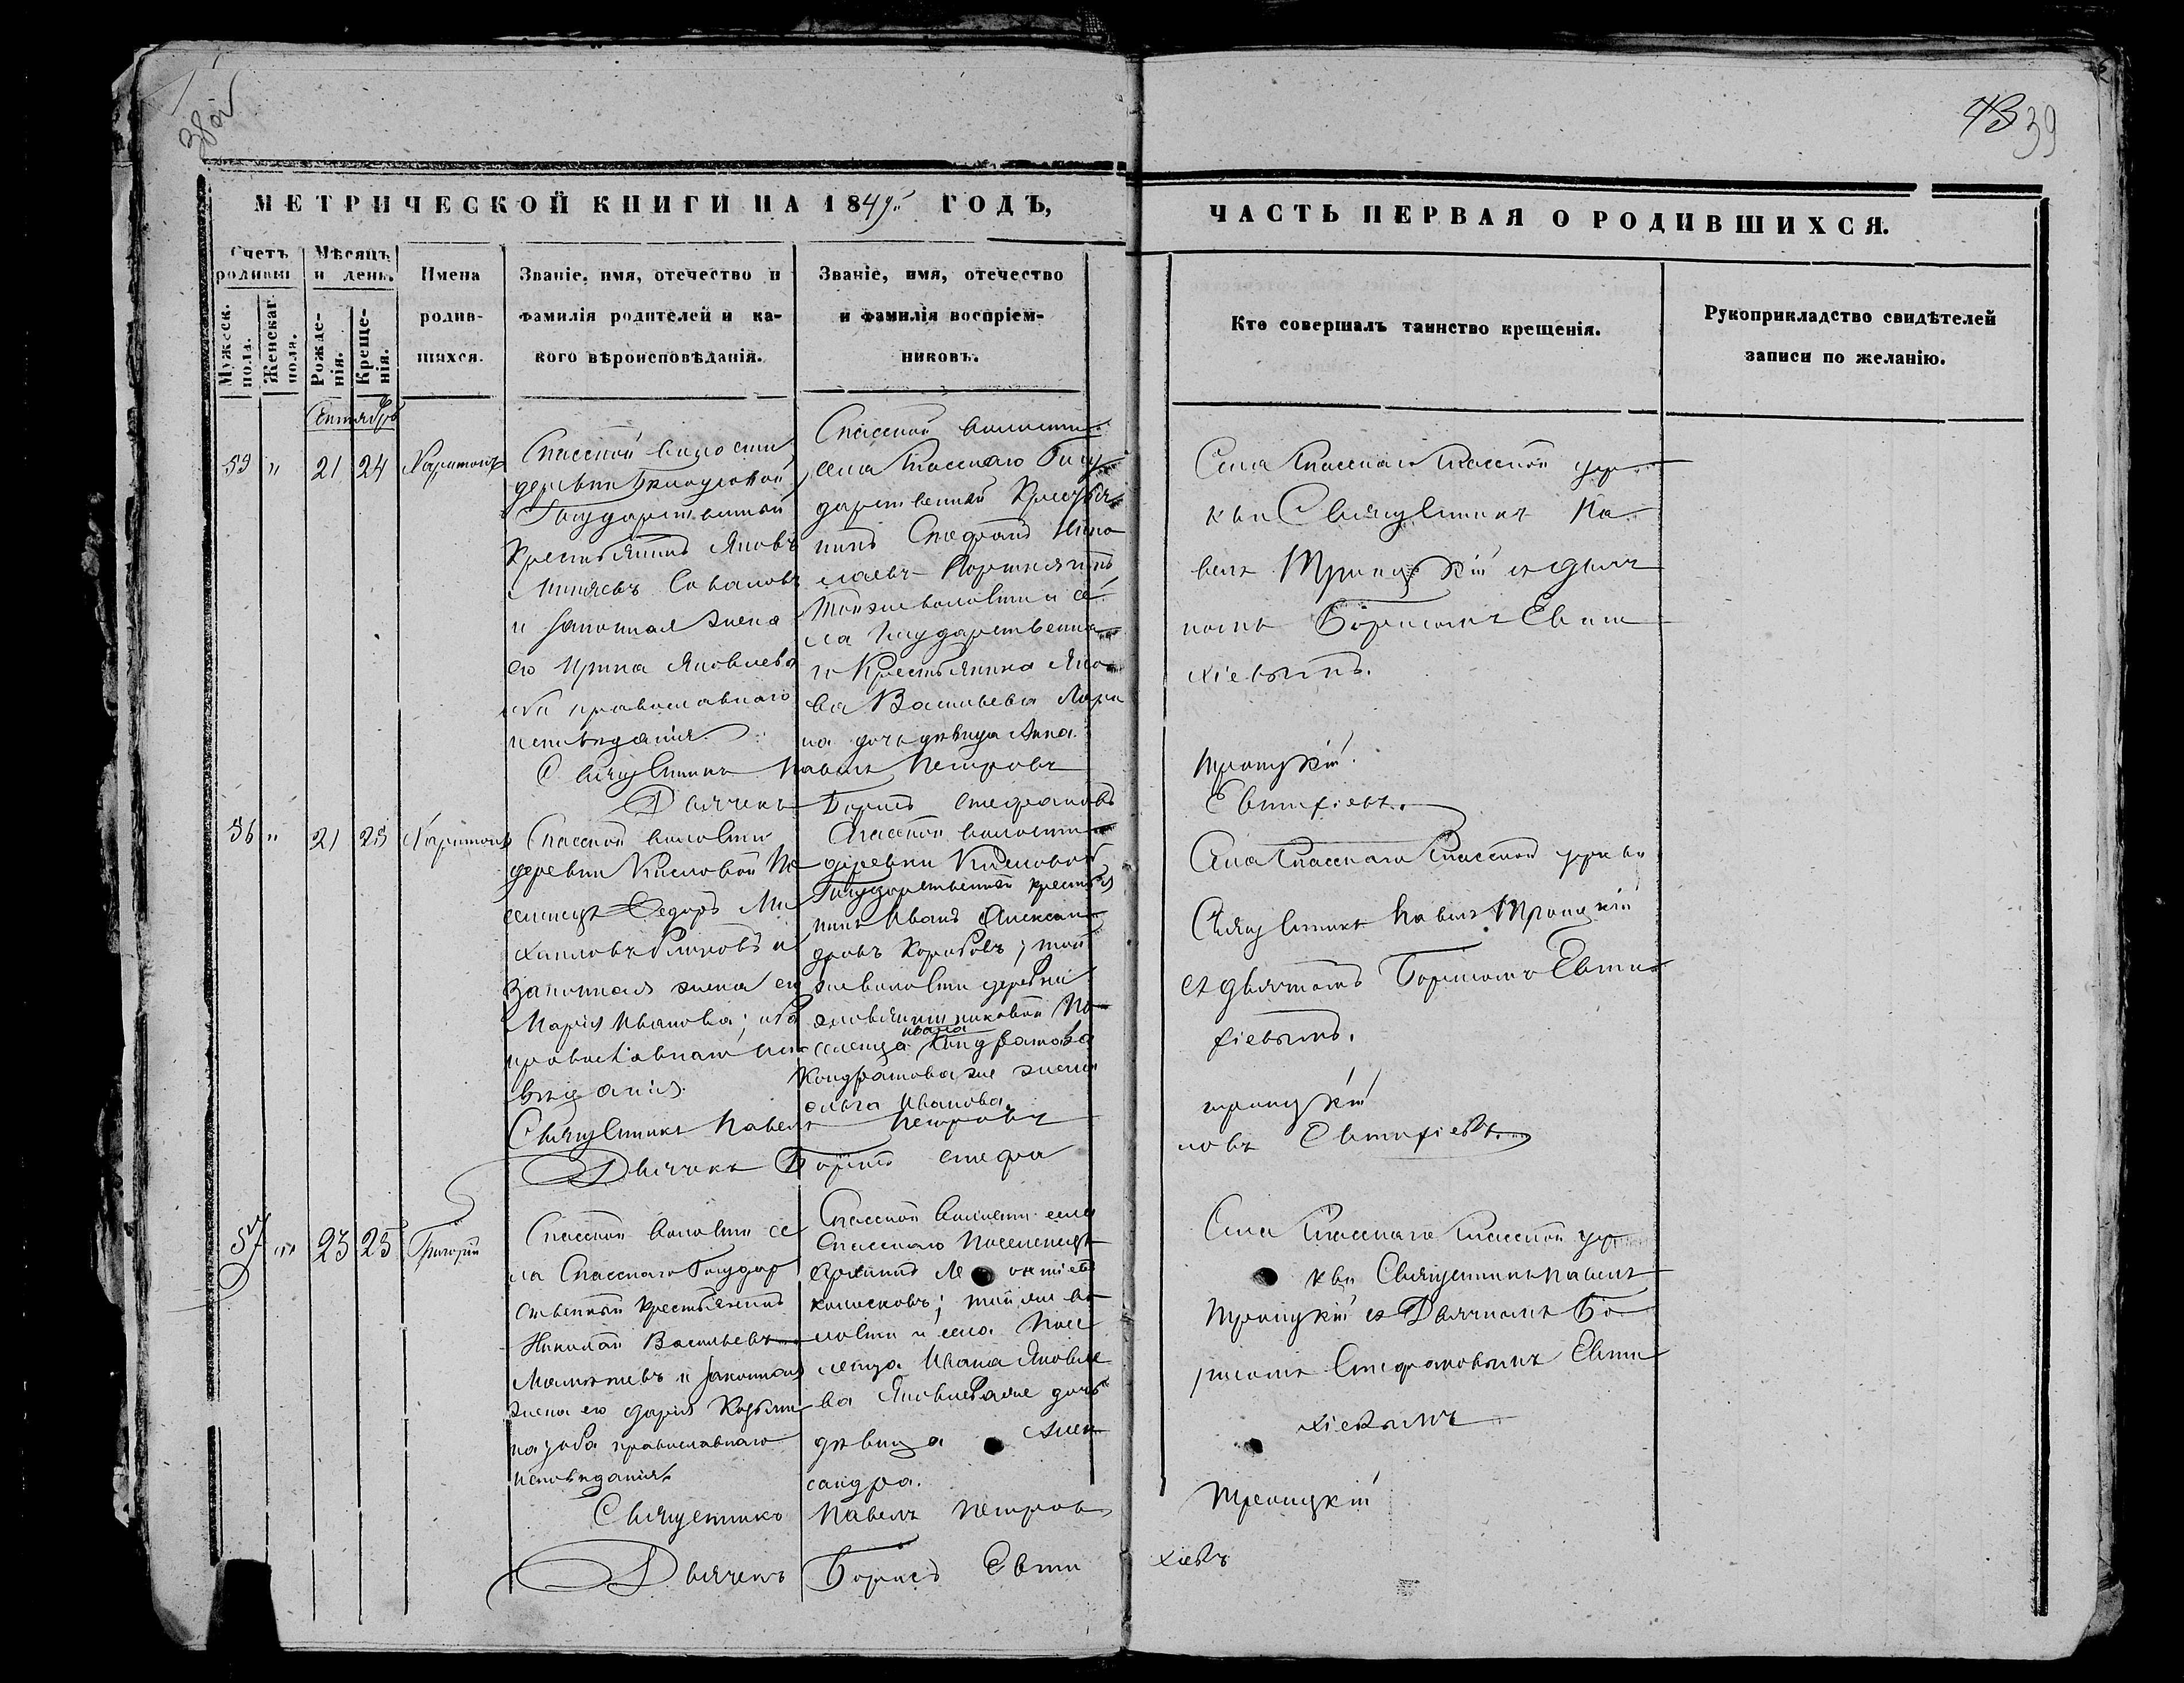 38
43 39
МЕТРИЧЕСКОЙ КНИГИ НА 1849 ГОДЪ,
ЧАСТЬ ПЕРВАЯ О РОДИВШИХСЯ.
Счетъ родивш
Мужеск. пола.
Женскаг пола.
Мѣсяцъ и день.
Рожденія.
Крещенія.
Имена
родив-
шихся.
Званіе, имя, отечество и
фамилія родителей и ка-
кого вѣроисповѣданія.
Званіе, имя, отечество
и фамилія воспріем-
никовъ.
Кто совершалъ таинство крещенія.
Рукоприкладство свидѣтелей
записи по желанію.
Сентябрь
" 21 24 Харитонъ
Спасской волости
деревни
Государственный
Крестьянинъ Яковъ
и законная жена
его Ирина Яковлева
оба православнаго
исповѣданія.
Спасской волости
села Спаскаго Госу
дарственный Крестья
нинъ Стефанъ Нико
лаевъ
тойже волости и се
ла Государственна
го Крестьянина Яко
ва Васильева
дочь дѣвица Анна.
Села Спаскаго Спаской цер
кви Священникъ Па
велъ Троицкій съ дьяч
комъ Борисомъ Евти
хіевымъ.
Священникъ Павелъ Петровъ
Троицкій.
Дьячекъ Борисъ Стефановъ
Евтифіевъ.
56 " 21 25 Харитонъ
Спасской волости
деревни Кисловой По
селенецъ Федоръ Ми
хаиловъ и
законная жена его
Марія Иванова; оба
православнаго испо
вѣданія.
Спасской волости
деревни Кисловой
Государственный крестья
нинъ Иванъ Алексан
дровъ Коробовъ; той
же волости деревни
По
селенца Ивана Кондратова
Кондратова же жена
Ольга Иванова.
Села Спаскаго Спаской церкви
Священникъ Павелъ Троицкій
съ дьячкомъ Борисомъ Евти
фіевымъ.
Священникъ Павелъ Петровъ
Троицкій
Дьячекъ Борисъ Стефа
новъ Евтифіевъ.
57 " 23 25 Григорій
Спасской волости се
ла Спаскаго Государ
ственный Крестьянинъ
Николай Васильевъ
и законная
жена его Дарія Козьми
на; оба православнаго
исповѣданія.
Спасской волости села
Спаскаго Поселенецъ
Архипъ Леонтіевъ
; той же во
лости и села Посе
ленца Ивана Яковле
ва Яковлева же дочь
дѣвица Алек
сандра.
Села Спаскаго Спаской цер
кви Священникъ Павелъ
Троицкій съ Дьячкомъ Бо
рисомъ Стефановымъ Евти
хіевымъ
Священникъ Павелъ Петровъ
Троицкій
Дьячекъ Борисъ Евти
хіевъ